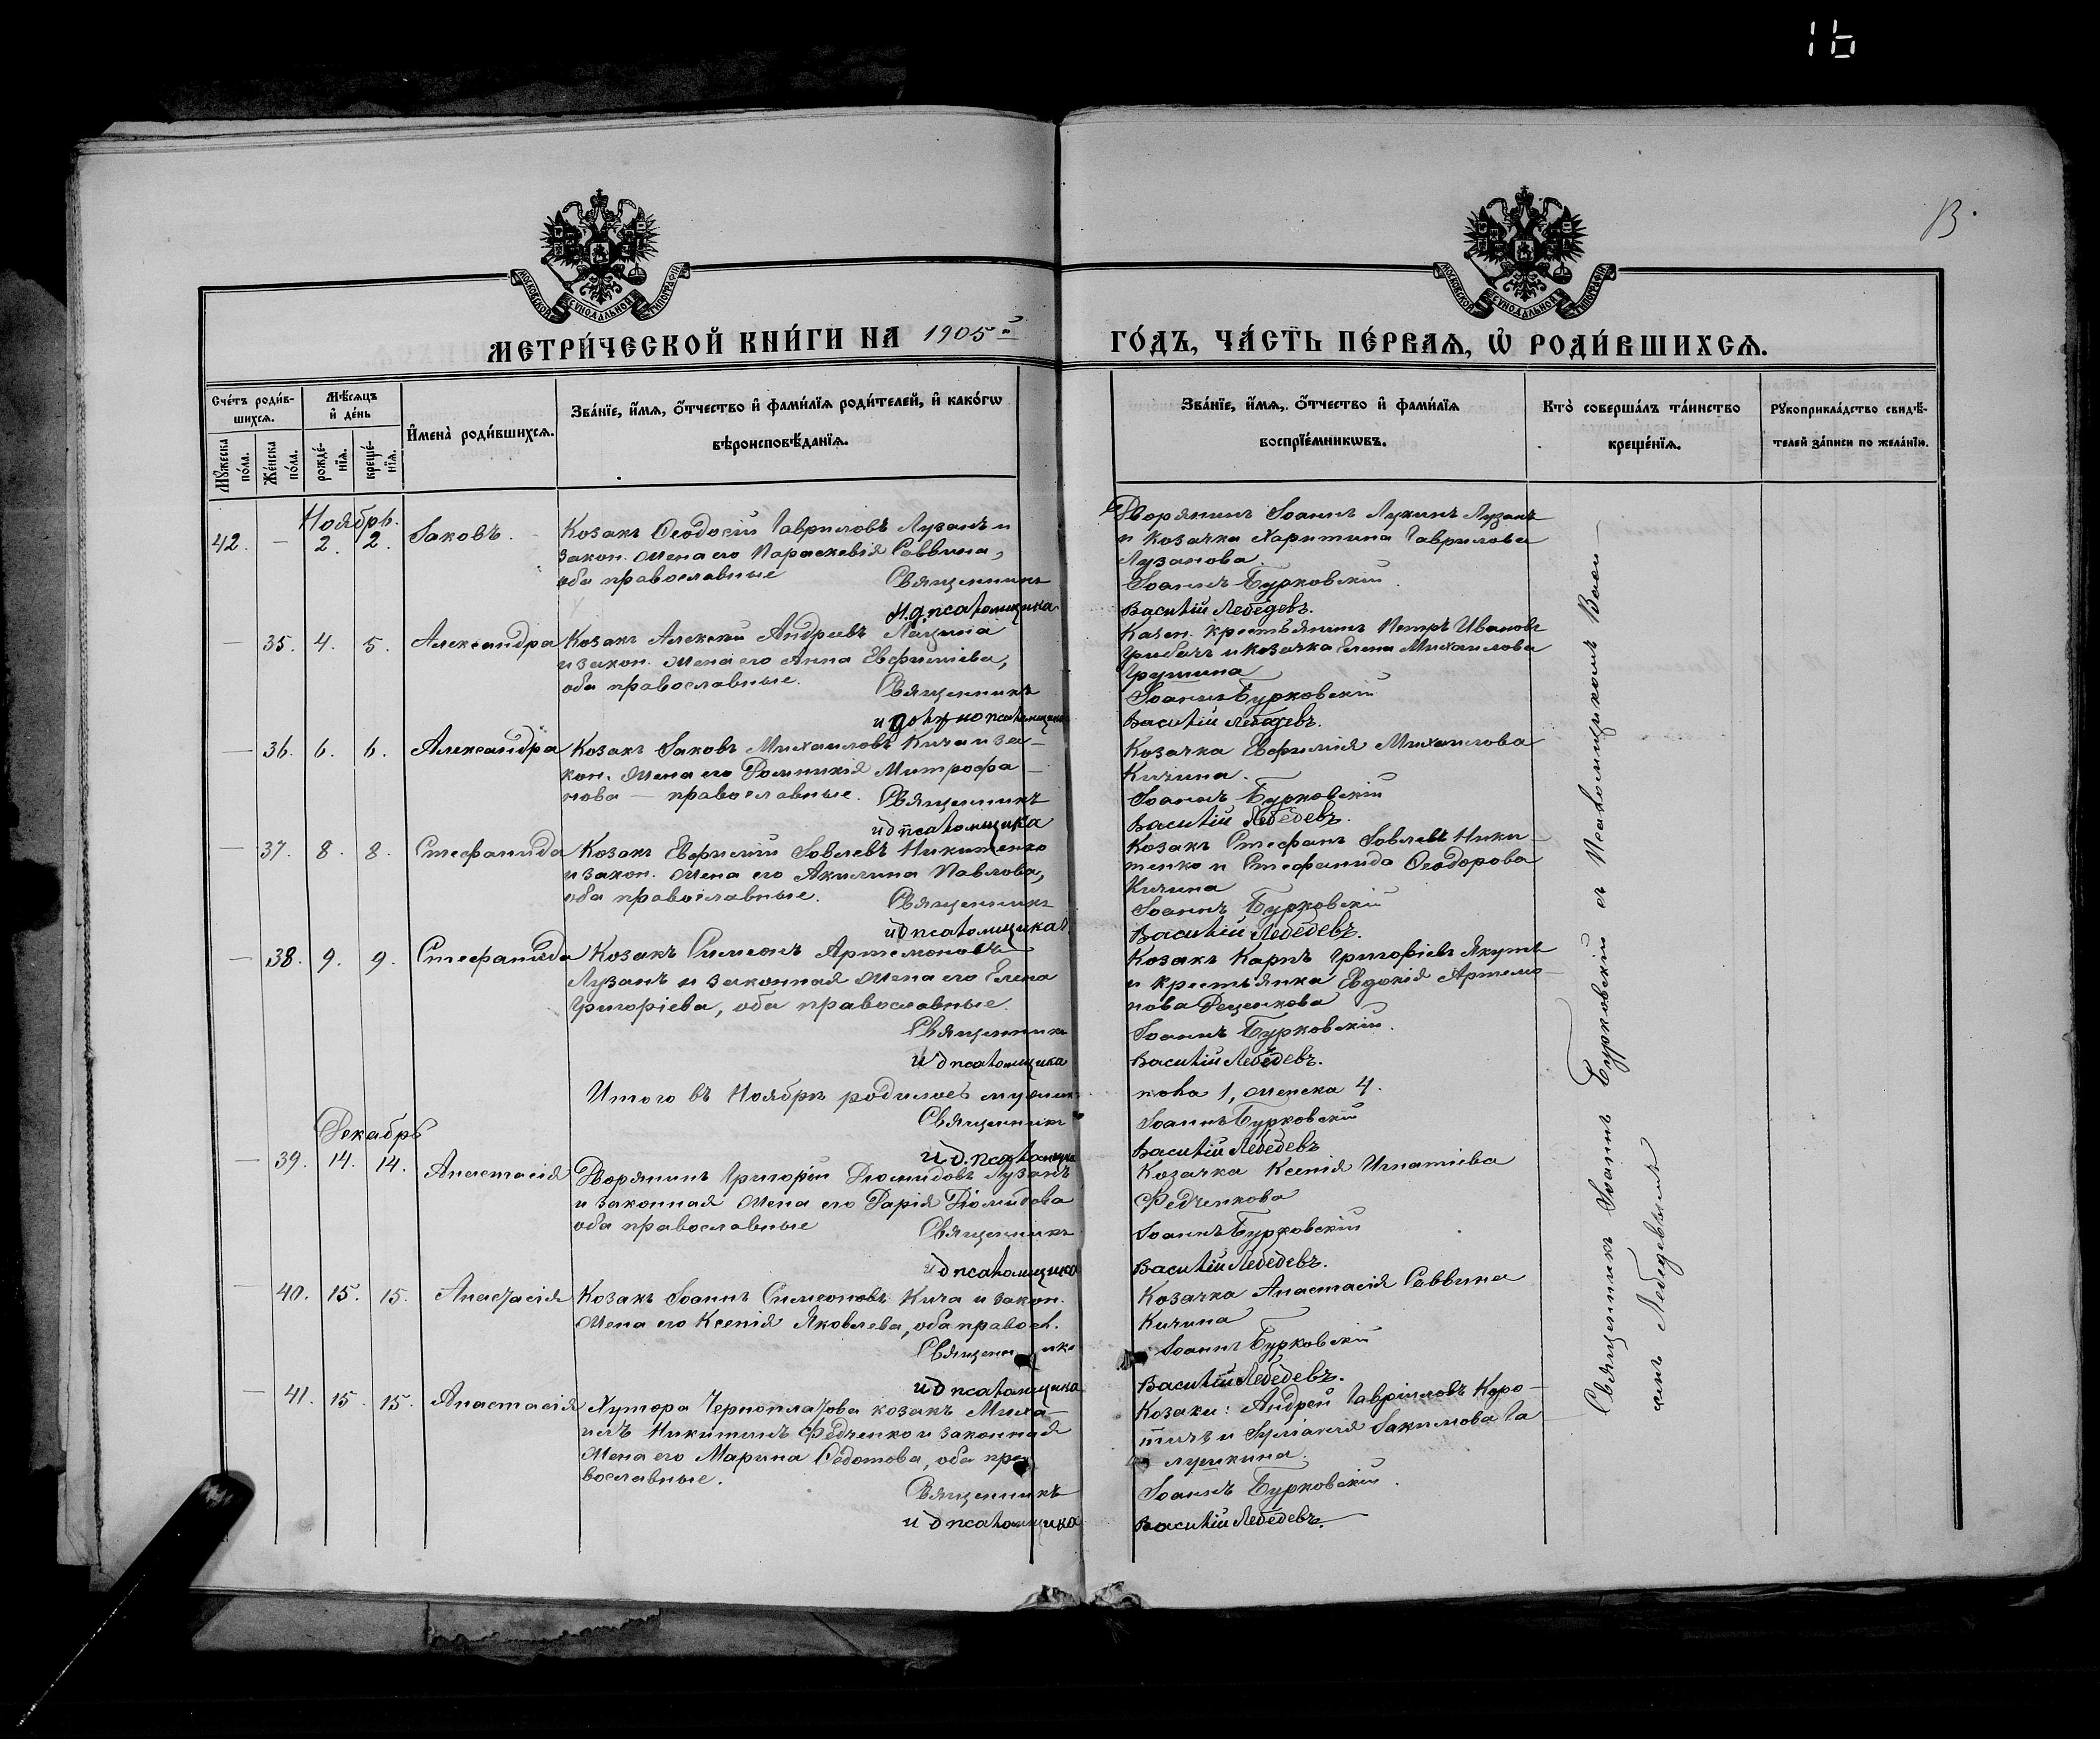 1b
13.
МОСКОВСКОЙ СѴНОДАЛЬНОЙ ТИПОГРАФІИ
МОСКОВСКОЙ СѴНОДАЛЬНОЙ ТИПОГРАФІИ
МЕТРИ́ЧЕСКОЙ КНИ́ГИ НА 1905 й
ГО́ДЪ, ЧА́СТЬ ПЕ́РВАѦ, Ѡ҆ РОДИ́ВШИХСѦ.
Сче́тъ роди́в-
шихсѧ.
Мꙋ́жеска по́ла.
Же́нска по́ла.
Мѣ́сѧцъ
и҆ де́нь
рожде́-
нїѧ.
креще́-
нїѧ.
И҆мена̀ роди́вшихсѧ.
Зва́нїе, и҆́мѧ, ѻ҆́тчество и҆ фами́лїѧ роди́телей, и҆ како́гѡ
вѣроисповѣ́данїѧ.
Зва́нїе, и҆́мѧ, ѻ҆́тчество и҆ фами́лїѧ
воспрїе́мникѡвъ.
Кто̀ соверша́лъ та́инство
креще́нїѧ.
Рꙋкоприкла́дство свидѣ́-
телей за́писи по жела́нїю.
Ноябрь.
42. — 2. 2. Іаковъ.
Козакъ Ѳеодосій Гавриловъ Лузанъ и
закон. жена его Параскевія Саввина,
оба православные
Священникъ
И.д. псаломщика
Дворянинъ Іоаннъ Лукинъ Лузанъ
и козачка Харитина Гаврилова
Лузанова.
Іоаннъ Бурковскій.
Василій Лебедевъ.
— 35. 4. 5. Александра
Козакъ Алексѣй Андреевъ
и закон. жена его Анна Евфиміева,
оба православные.
Священникъ
и должн. псаломщика
Казен. крестьянинъ Петръ Ивановъ
Грибачъ и козачка Елена Михаилова
Іоаннъ Бурковскій
Василій Лебедевъ.
— 36. 6. 6. Александра
Козакъ Іаковъ Михаиловъ Кича и за-
кон. жена его Домникія Митрофа-
нова — православные. Священникъ
и д псаломщика
Козачка Евфимія Михаилова
Кичина.
Іоаннъ Бурковскій
Василій Лебедевъ.
— 37. 8. 8. Стефанида
Козакъ Евфимій Іовлевъ Никитенко
и закон. жена его Акилина Павлова,
оба православные.
Священникъ
и д псаломщика
Козакъ Стефанъ Іовлевъ Ники-
тенко и Стефанида Ѳеодорова
Кичина
Іоаннъ Бурковскій
Василій Лебедевъ.
— 38. 9. 9. Стефанида
Козакъ Симеонъ Артемоновъ
Лузанъ и законная жена его Елена
Григоріева, оба православные
Священникъ
и д псаломщика
Козакъ Карпъ Григоріевъ Якутъ
и крестьянка Евдокія Артемо-
нова Деценкова
Іоаннъ Бурковскій.
Василій Лебедевъ.
Итого въ Ноябрѣ родилось мужес-
кого 1, женска 4.
Священникъ
Іоаннъ Бурковскій
и.д. псаломщика
Василій Лебедевъ
Декабрь
— 39. 14. 14. Анастасія
Дворянинъ Григорій Діомидовъ Лузанъ
и законная жена его Дарія Діомидова
оба православные
Священникъ
и д псаломщика
Козачка Ксенія Игнатіева
Федченкова
Іоаннъ Бурковскій
Василій Лебедевъ.
— 40. 15. 15. Анастасія
Козакъ Іоаннъ Симеоновъ Кича и закон.
жена его Ксенія Яковлева, оба правосл.
Священникъ
и д псаломщика
Козачка Анастасія Саввина
Кичина
Іоаннъ Бурковскій
Василій Лебедевъ.
— 41. 15. 15. Анастасія
Хутора Черноплатова козакъ Миха-
илъ Никитинъ Федченко и законная
жена его Марина Федотова, оба пра-
вославные.
Священникъ
и д псаломщика
Козаки: Андрей Гавріиловъ Коро-
тичъ и Іуліанія Іакимова Га-
лушкина.
Іоаннъ Бурковскій.
Василій Лебедевъ.
Священникъ Іоаннъ Бурковскій съ Псаломщикомъ Васи-
ліемъ Лебедевымъ